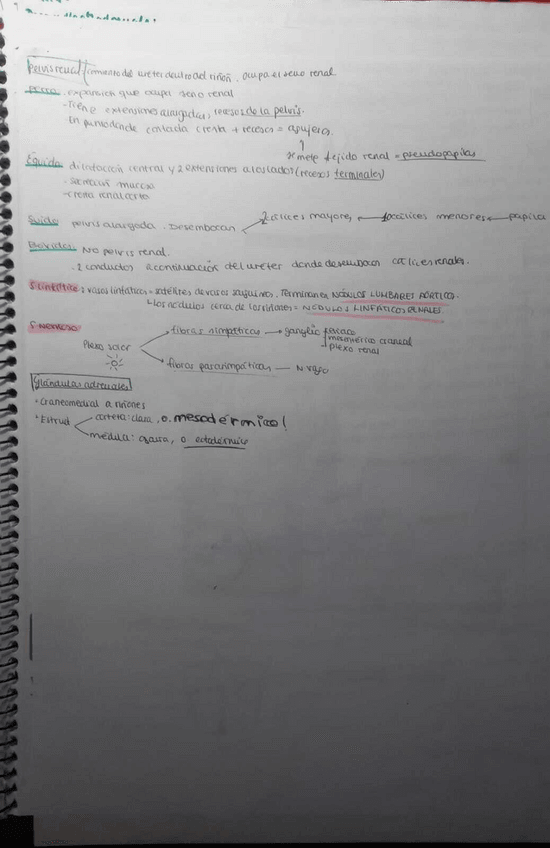 Pelvis renal / miento del uréter dentro del riñón, ocupa el seno renal
Perro: expansión que ocupa seno renal
- Tiene extensiones alargadas, recesos de la pelvis.
- En punto donde contacta cresta + recesos = agujeros.
se mete tejido renal = pseudopapilas
Équido: dilatación central y 2 extensiones a los lados (recesos terminales)
- Secreción mucosa
- cresta renal
Suido: pelvis alargada. Desembocan 2 cálices mayores cálices menores papila
Bóvidos: NO pelvis renal.
. 2 conductos a continuación del uréter donde desembocan cálices renales.
S. linfático: vasos linfáticos = satélites de vasos sanguíneos. Terminan en NÓDULOS LUMBARES AÓRTICOS.
los nódulos cerca de los riñones = NÓDULOS LINFÁTICOS RENALES.
S. Nervioso:
Plexo solar
fibras simpáticas ganglio
mesentérico craneal
plexo renal
fibras parasimpáticas — N. vago
Glándulas adrenales
• Craneomedial a riñones
• Estruct
corteza: clara, o. mesodérmico!
médula: oscura, o ectodérmico